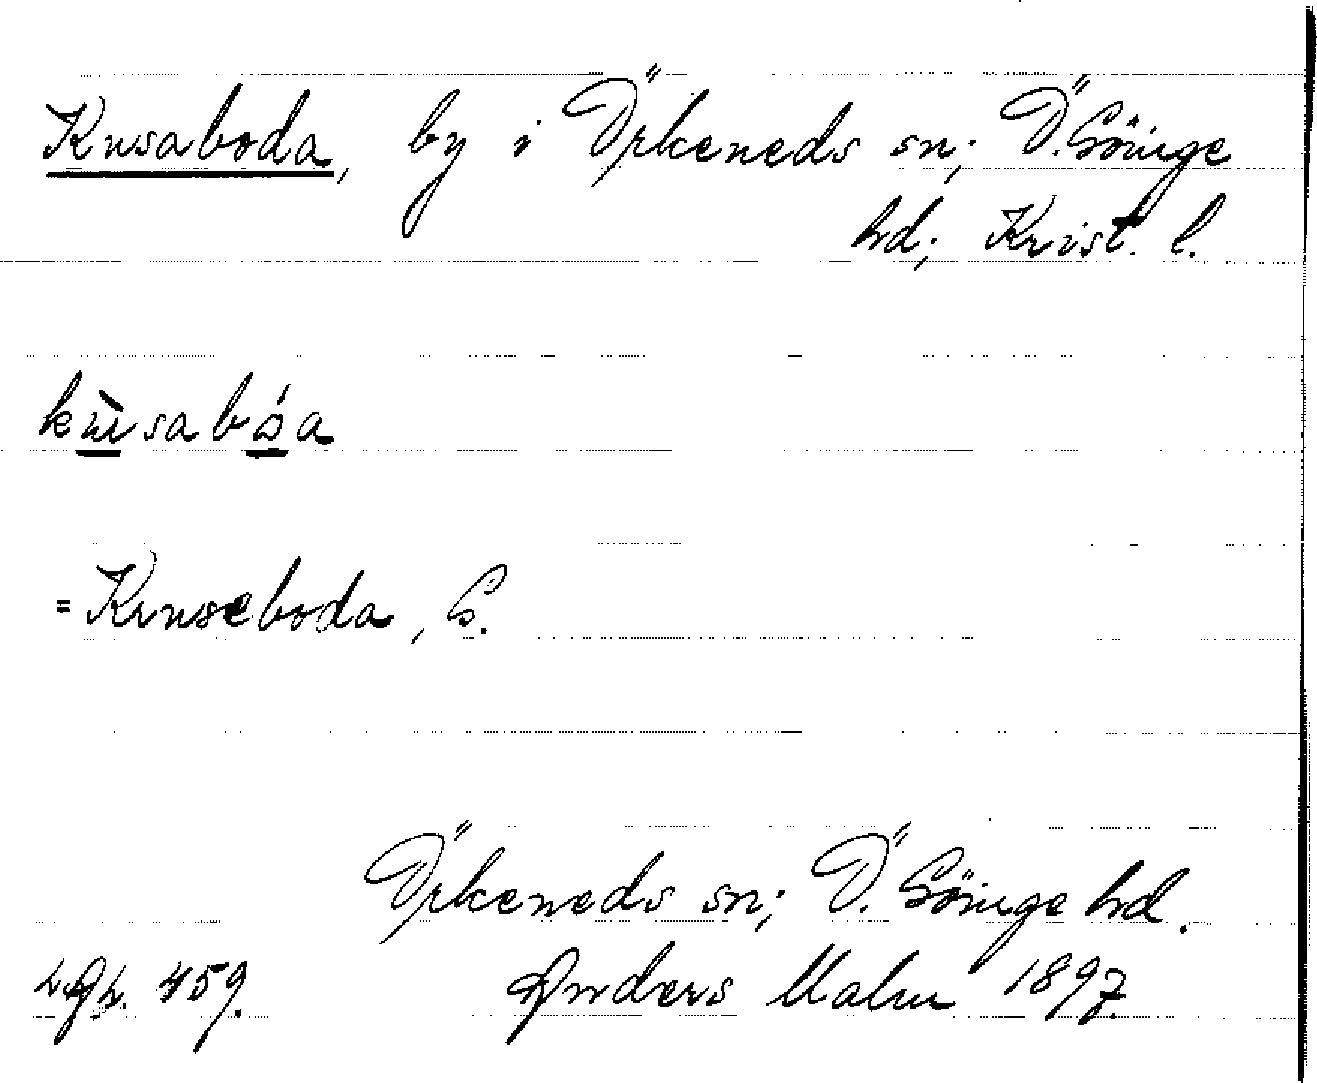 Kusaboda, by i Örkeneds sn; Ö. Göinge
hd; Krist. l.
kùsabóa
= Kruseboda, G.
Örkeneds sn; Ö. Göinge hd.
459. Anders Malm 1897.